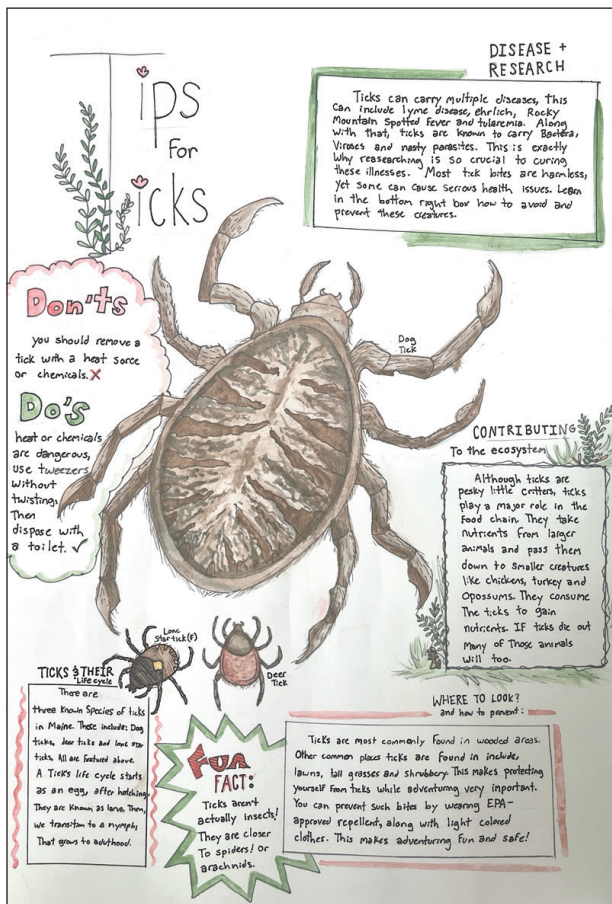 Tips
For
Ticks
DISEASE +
RESEARCH
Ticks can carry multiple diseases, this
can include lyme disease, ehrlich, Rocky
Mountain Spotted Fever and tularemia. Along
with that, ticks are known to carry Bacteria,
Viroses and nasty parasites. This is exactly
why reasearching is so crucial to curing
these illnesses. Most tick bites are harmless,
yet some can cause serious health issues. Learn
in the bottom right box how to avoid and
prevent these creatures.
Don'ts
you should remove a
tick with a heat sorce
or chemicals. X
Do's
heat or chemicals
are dangerous,
use tweezers
without
twisting,
Then
dispose with
a toilet. ✓
Dog
Tick
CONTRIBUTING
To the ecosystem
Although ticks are
pesky little critters, ticks
play a major role in the
food chain. They take
nutrients from larger
animals and pass them
down to smaller creatures
like chickens, turkey and
opossums. They consume
The ticks to gain
nutrients. IF ticks die out
many of Those animals
will too.
Lone
Star tick (F)
Deer
Tick
TICKS & THEIR
Life cycle
There are
three known Species of ticks
in Maine. These include: Dog
ticks, deer ticks and lone star
ticks. All are featured above.
A Tick's life cycle starts
as an egg, after hatching,
They are Known as larva. Then,
we transition to a nymph,
That grows to adulthood.
FUN
FACT:
Ticks aren't
actually insects!
They are closer
To spiders! or
arachnids.
WHERE TO LOOK?
and how to prevent:
Ticks are most commonly found in wooded areas.
Other common places ticks are found in include,
lawns, tall grasses and shrubbery. This makes protecting
yourself from ticks while adventuring very important.
You can prevent such bites by wearing EPA-
approved repellent, along with light colored
clothes. This makes adventuring fun and safe!